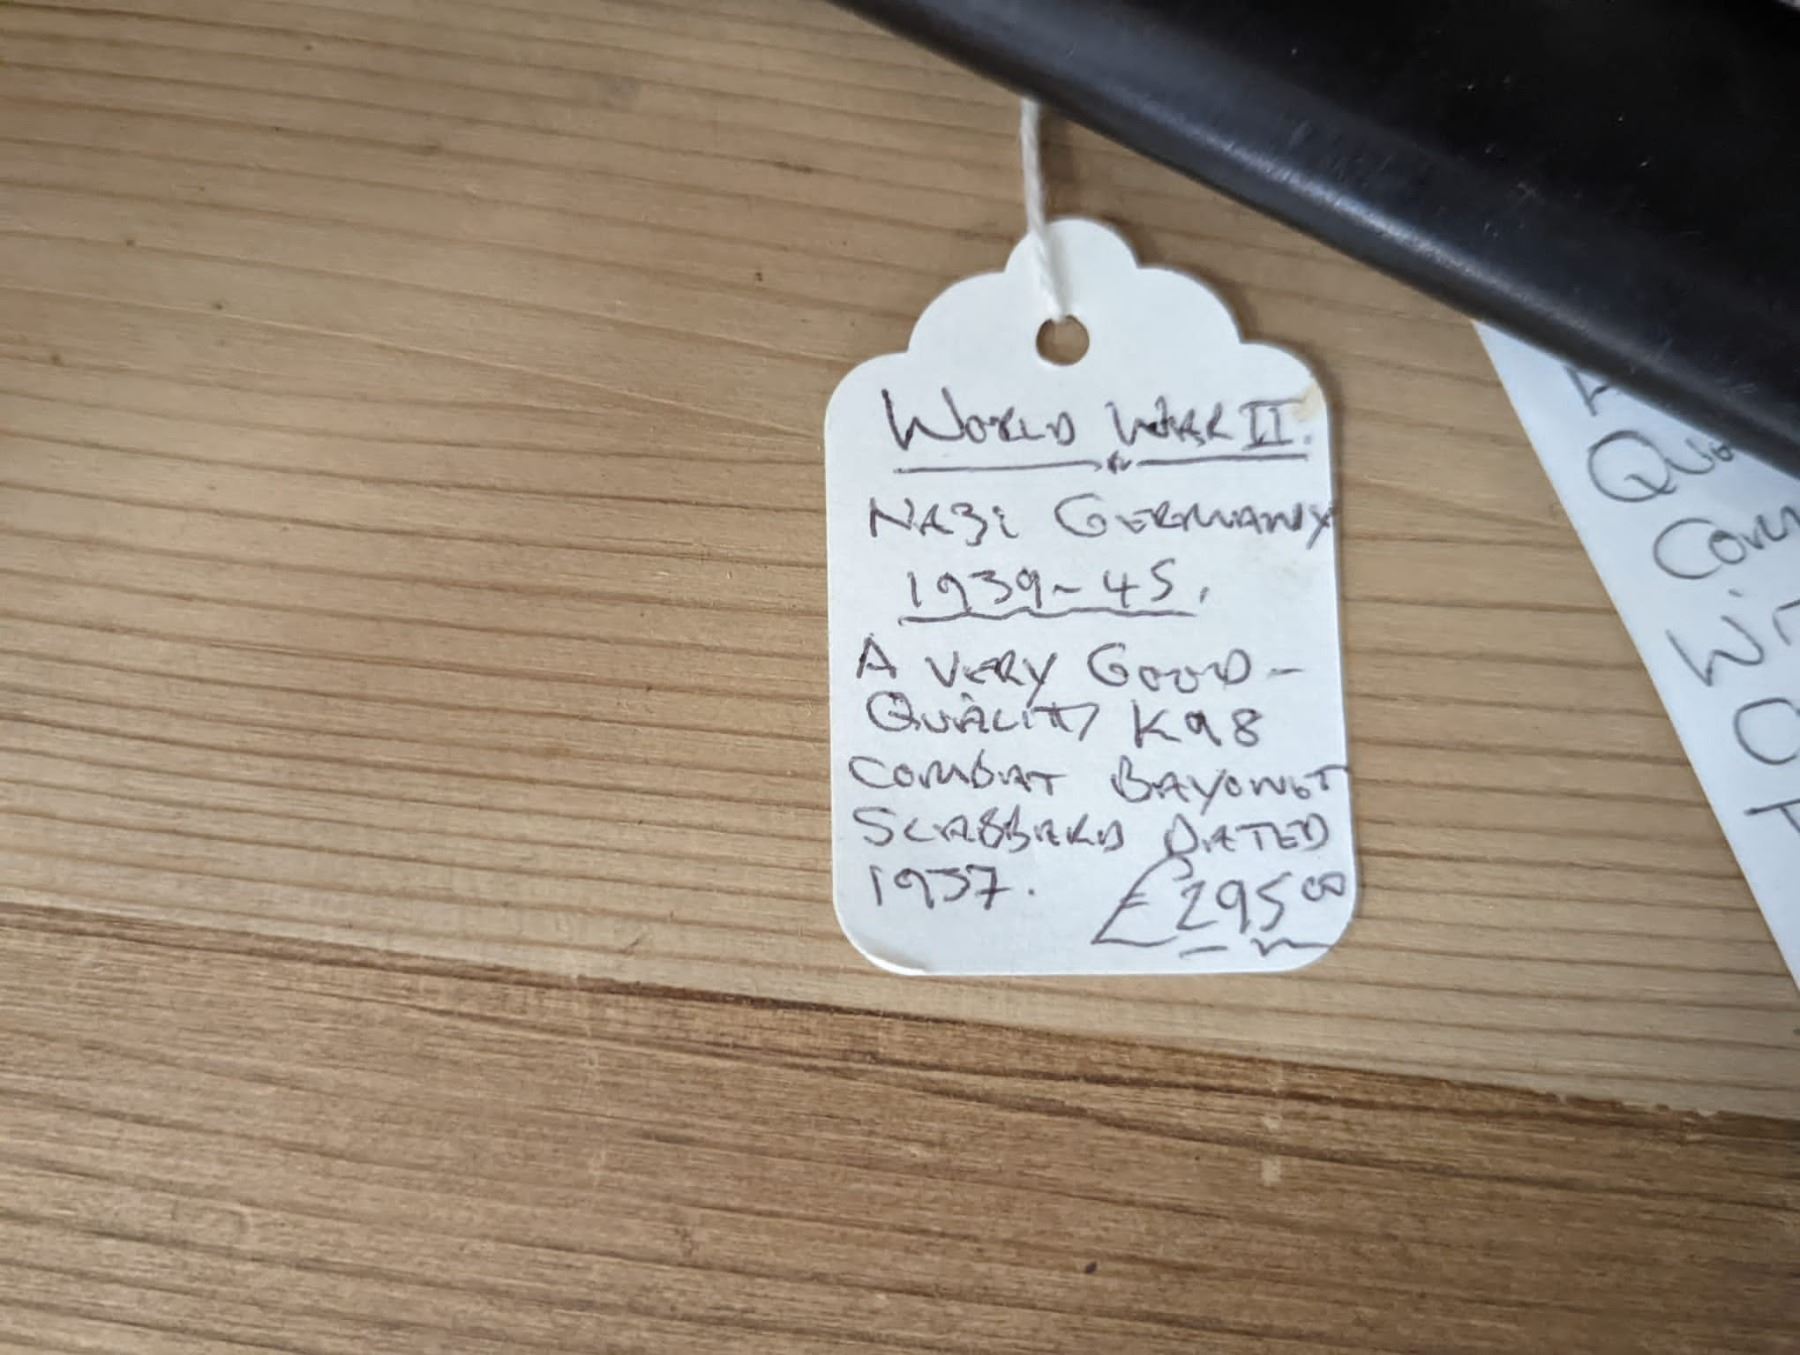 WORLD WAR II.
NAZI GERMANY
1939-45.
A VERY GOOD-
QUALITY K98
COMBAT BAYONET
SCABBARD DATED
1937. £295.00
QU
COM
WIT